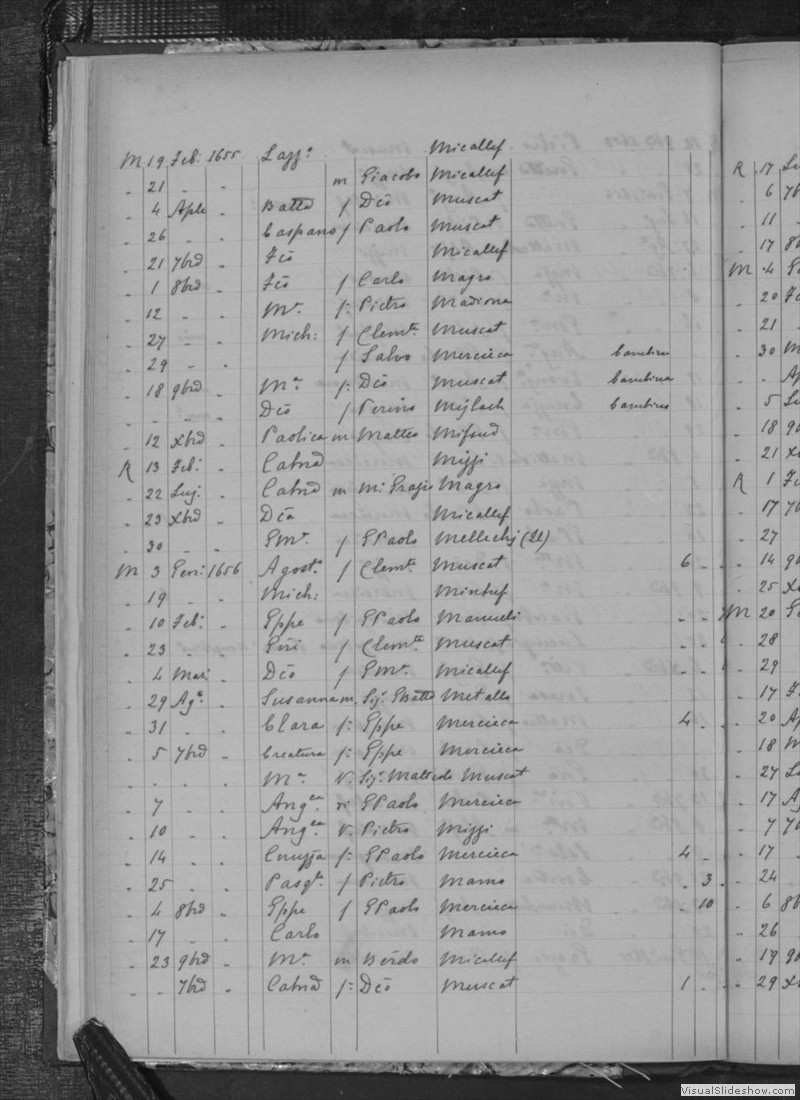 M 19 Feb: 1655. Lazz° Micallef.
. 21 . . m Giacobo Micallef
. 4 Aple . Batta f Dco Muscat
. 26 . . Caspano f Paolo Muscat
. 21 7brd . Fco Micallef
. 1 8brd . Fco f Carlo Magro
. 12 . . Ma. f: Pietro Madiona
. 27 . . Mich: f Clemte Muscat
. 29 . . f Salvo Mercieca bambina
. 18 9brd . Ma f: Dco Muscat bambina
. . . . Dco f Perino Mijlach bambino
. 12 xbrd . Paolica m Matteo Mifsud
R 13 Feb: . Catrd Mizzi
. 22 Lug. . Catrd m Mi Grazio Magro
. 23 xbrd . Dca Micallef
. 30 . . GMa. f GPaolo Mellechj (Il)
M 3 Gen: 1656 Agosta f Clemte Muscat 6 .
. 19 . . Mich: Mintuf
. 10 Feb: . Gppe f GPaolo Manueli . .
. 23 . . Gni f Clemte Muscat . .
. 4 Mar: . Dco f GMa. Micallef . .
. 29 Ago. . Susanna m. Sig. GBatta Metallo
. 31 . . Clara f: Gppe Mercieca 4 .
. 5 7brd . Creatura f: Gppe Mercieca
. . . . Ma V. Sig. Matteolo Muscat
. 7 . . Angca vi GPaolo Mercieca
. 10 . . Angca V. Pietro Mizzi
. 14 . . Cnuzza f: GPaolo Mercieca 4 .
. 25 . . Pasqle f Pietro Mamo . 3
. 4 8brd . Gppe f GPaolo Mercieca . 10
. 17 . . Carlo Mamo
. 23 9brd . Ma. m Berdo Micallef
. . 7brd . Catrd f: Dco Muscat 1 .
R 17 Lu
. 6 7b
. 11 .
. 17 8b
M . 4 G
. 20 Fe
. 21 .
. 30 M
. . Ap
. 5 Lu
. 18 9b
. 21 x
R 1 Fe
. 17 7b
. 27
. 14 9b
. 25 xb
M 20 G
. 28
. 29
. 17 F
. 20 Ap
. 18 M
. 27 Lu
. 17 Ag
. 7 7b
. 17 .
. 24
. 6 8b
. 26
. 19 9b
. 29 x
VisualSlideshow.com